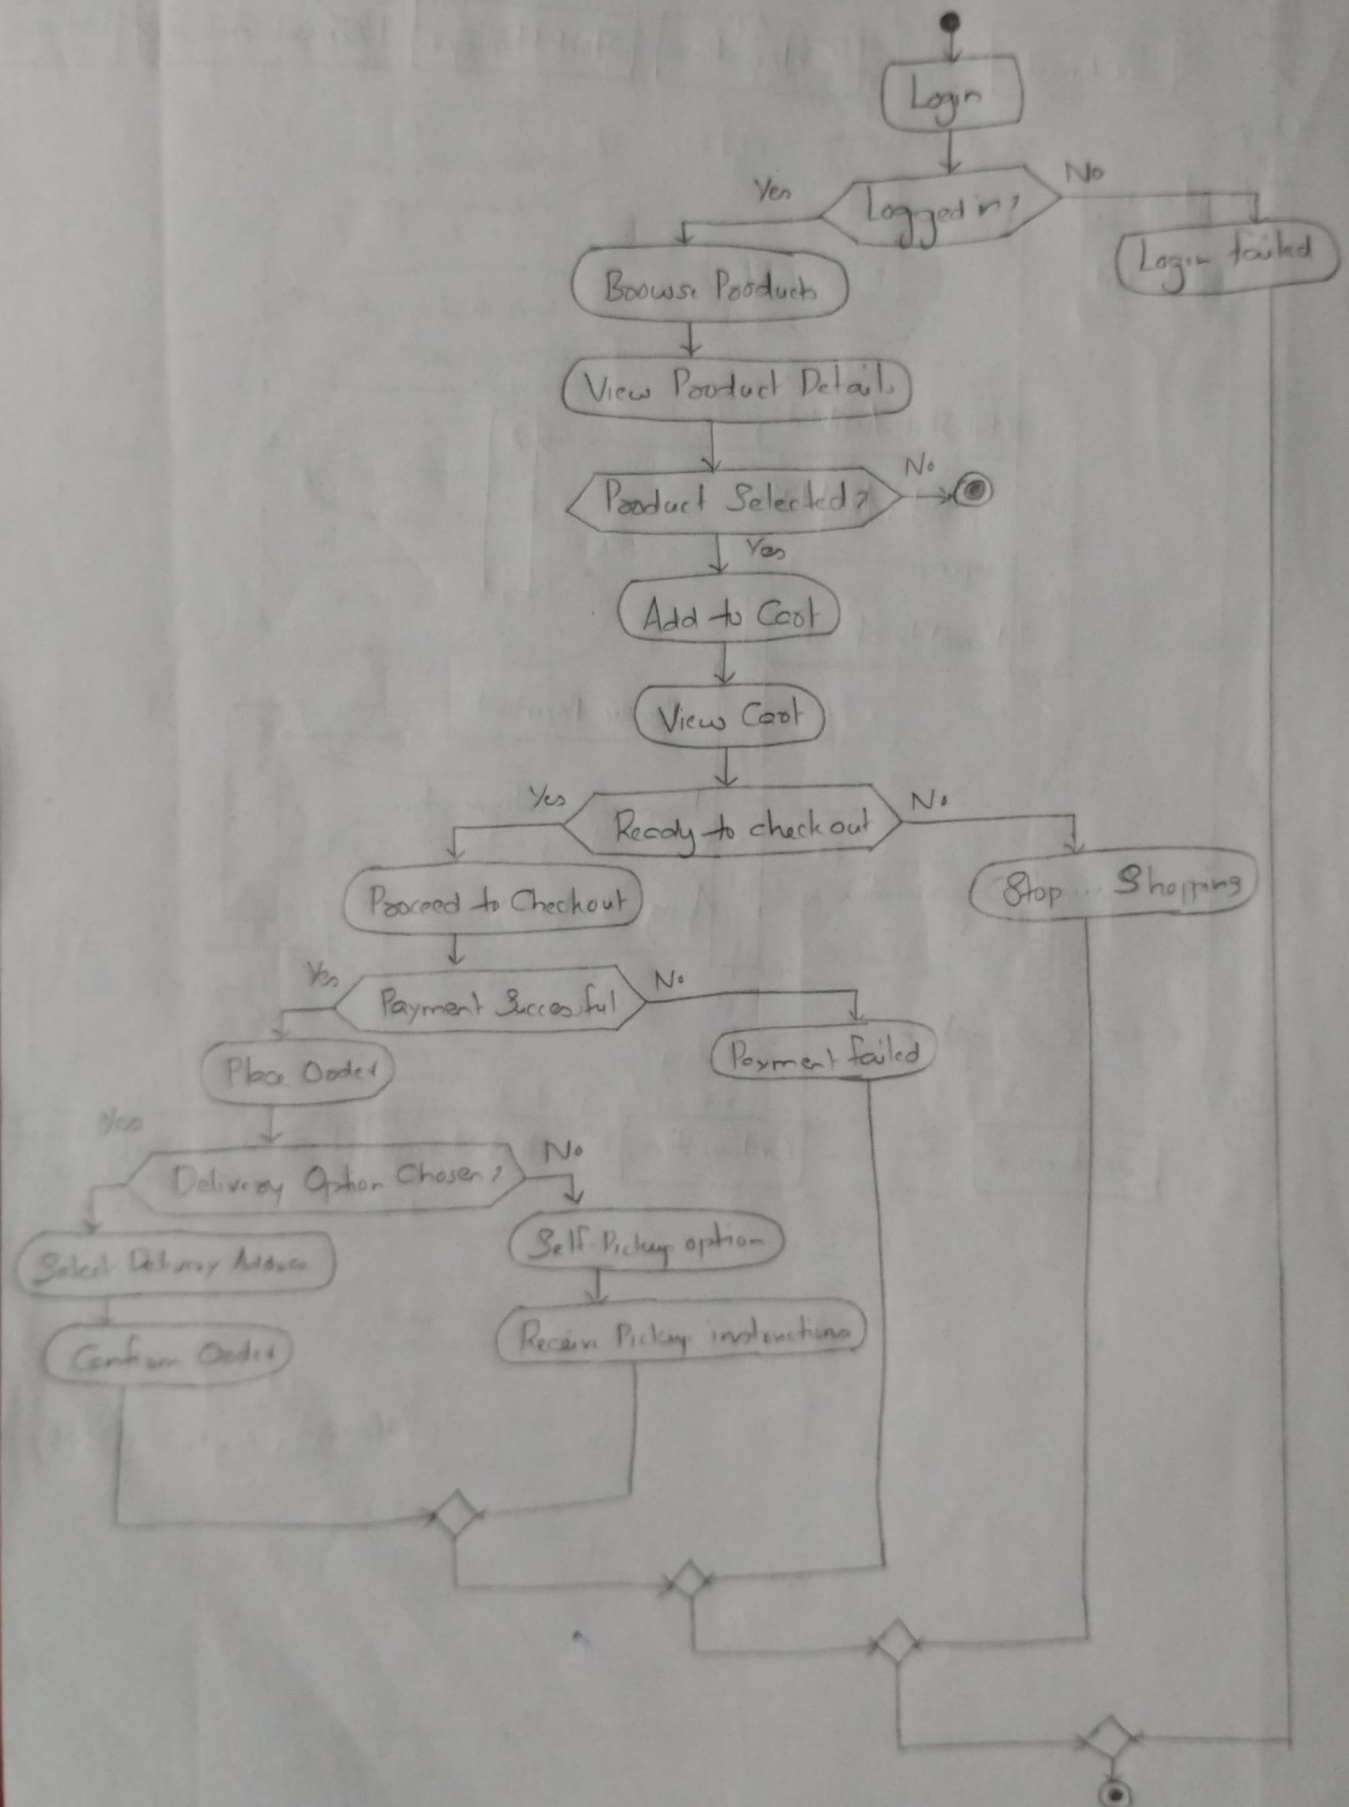 Login
Logged in?
Yes
No
Login failed
Browse Products
View Product Details
Product Selected?
No
Yes
Add to Cart
View Cart
Ready to checkout
Yes
No
Proceed to Checkout
Stop... Shopping
Payment Succesful
Yes
No
Place Order
Payment failed
Yes
Delivery Option Chosen?
No
Select Delivery Address
Self-Pickup option
Confirm Order
Receive Pickup instructions